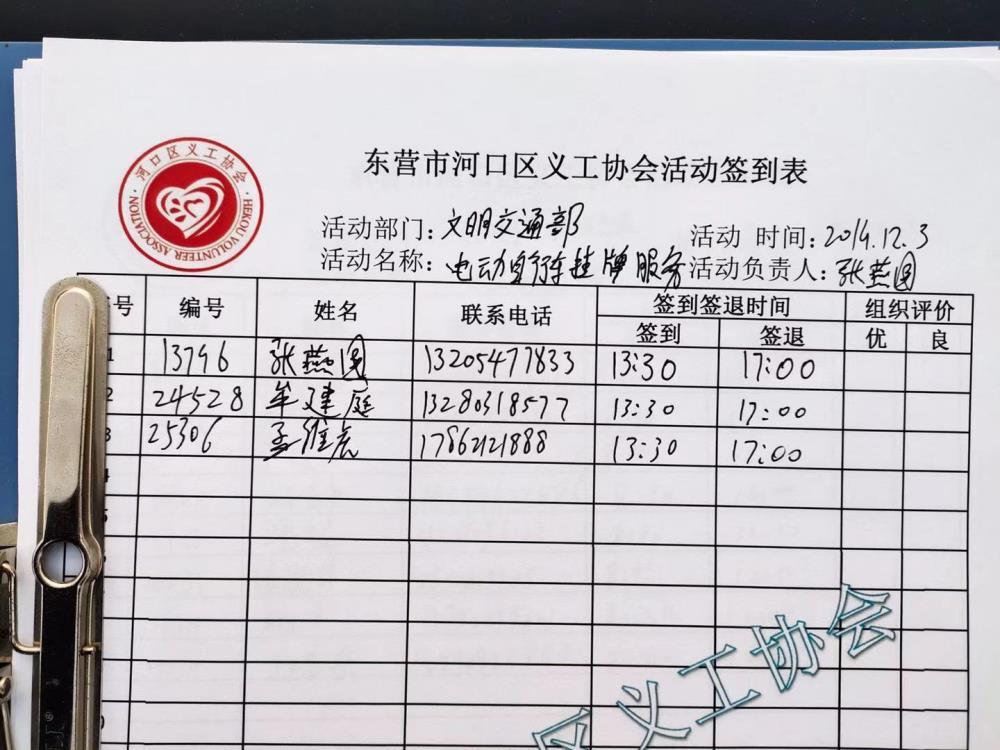 东营市河口区义工协会活动签到表
河口区义工协会
HEKOU VOLUNTEER ASSOCIATION
活动部门：文明交通部 活动 时间：2019.12.3
活动名称：电动自行车挂牌服务 活动负责人：张燕园
号 编号 姓名 联系电话 签到签退时间 组织评价
签到 签退 优 良
1 13796 张燕园 13205477833 13:30 17:00
2 24528 牟建庭 13280318577 13:30 17:00
3 25306 孟维宏 17862121888 13:30 17:00
区义工协会